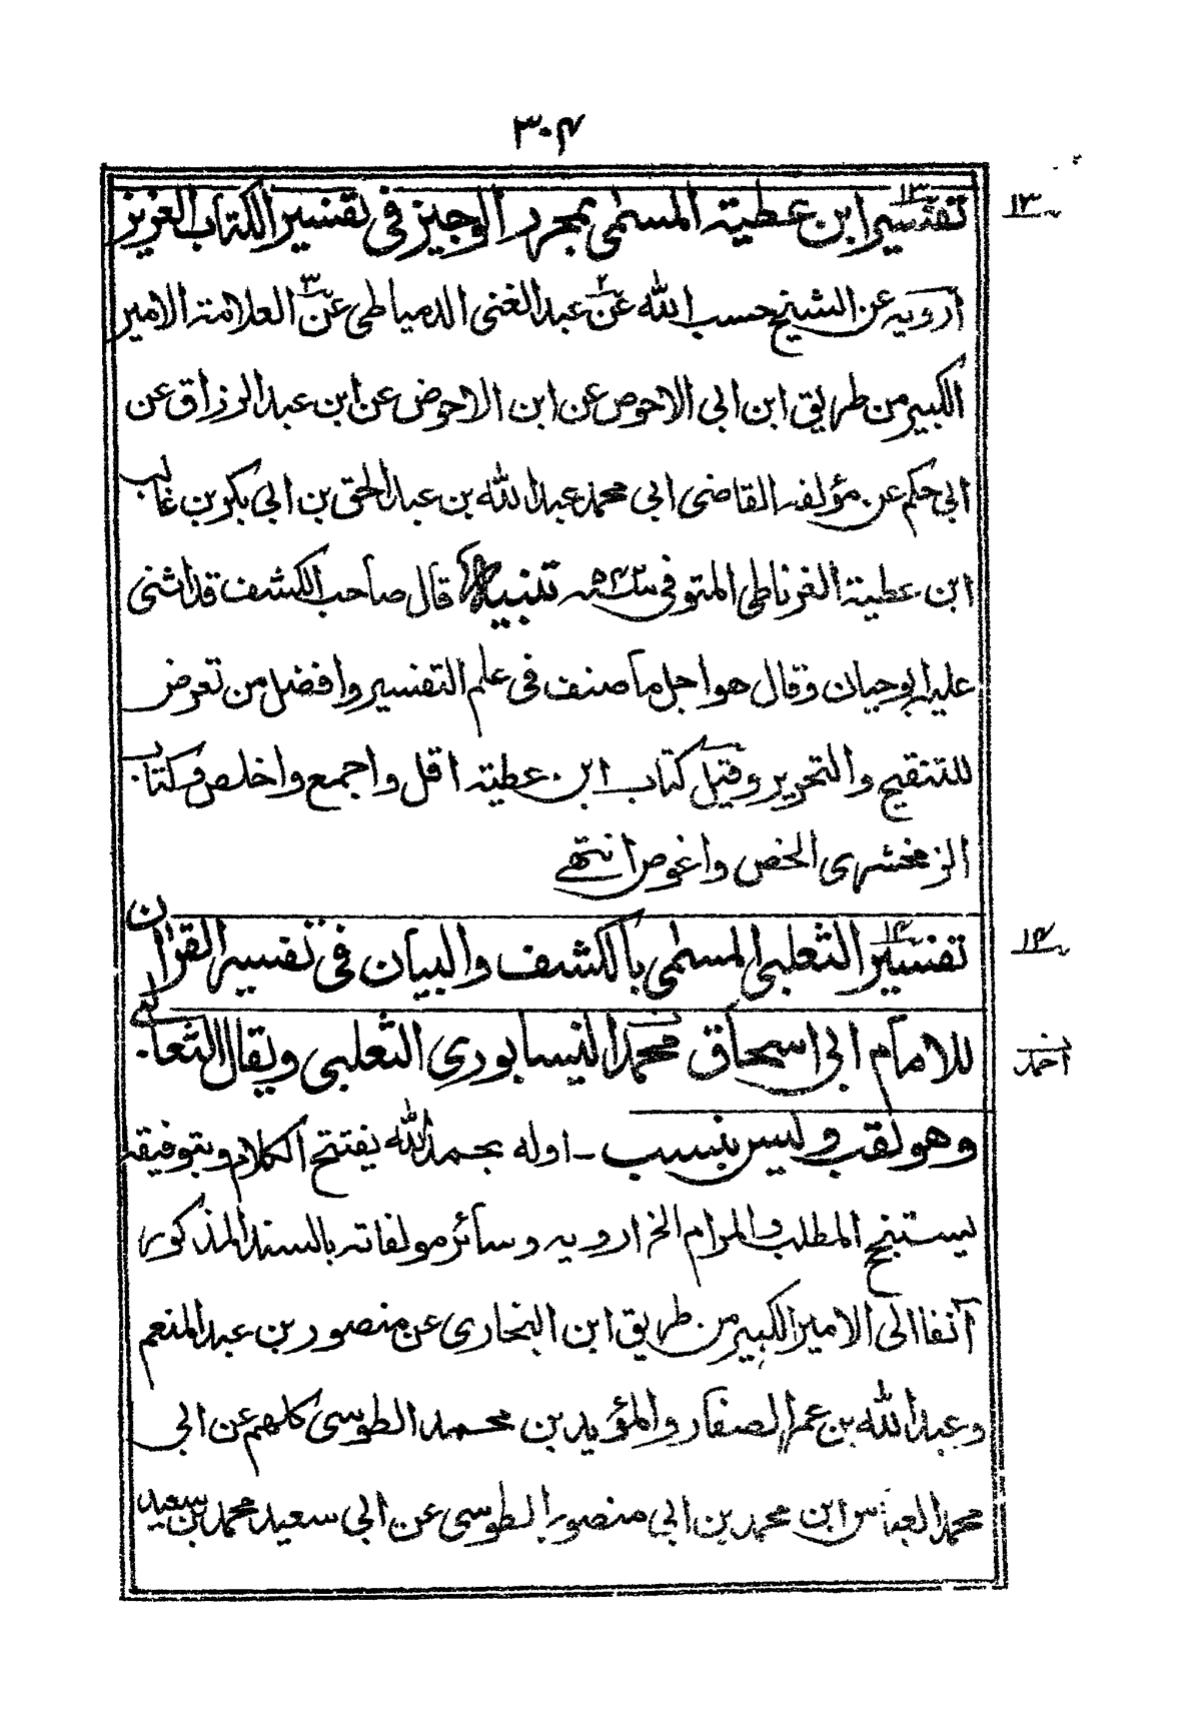 ٣٠٤
١٣
تفسير ابن عطية المسمى بمجرد الوجيز فى تفسير الكتاب العزيز
١٣
ارويه عن الشيخ حسب الله عن ٢ عبد الغنى الدمياطى عن ٣ العلامة الامير
الكبير من طريق ابن ابى الاحوص عن ابن الاحوض عن ابن عبد الرزاق عن
ابى حكم عن مؤلفه القاضى ابى محمد عبد الله بن عبد الحق بن ابى بكر بن غالب
ابن عطية الغرناطى المتوفى سنه تنبيه قال صاحب الكشف قد اثنى
عليه ابو حيان وقال هو اجل ما صنف فى علم التفسير وافضل من تعرض
للتنقيح والتحرير وقيل كتاب ابن عطيته اقل واجمع واخلص وكتاب
الزمخشرى الخص واغوص انتهے
١٤
تفسير الثعلبى المسمى بالكشف والبيان فى تفسير القرآن
١٤
للامام ابى اسحاق محمد النيسابورى الثعلبى ويقال الثعالبى
احمد
وهو لقب وليس بنسب - اوله بحمد الله يفتتح الكلام وبتوفيقه
يستنجح المطلب والمرام الخ ارويه وسائر مولفاته بالسند المذكور
آنفا الى الامير الكبير من طريق ابن البخارى عن منصور بن عبد المنعم
وعبد الله بن عمر الصفار والمؤيد بن محمد الطوسى كلهم عن ابى
محمد العباس ابن محمد بن ابى منصور الطوسى عن ابى سعيد محمد بن سعيد